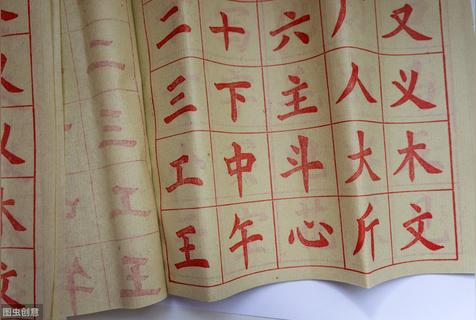 二 二 十 六 又
三 三 下 主 人 义
工 工 中 斗 大 木
王 王 午 心 斤 文
图虫创意